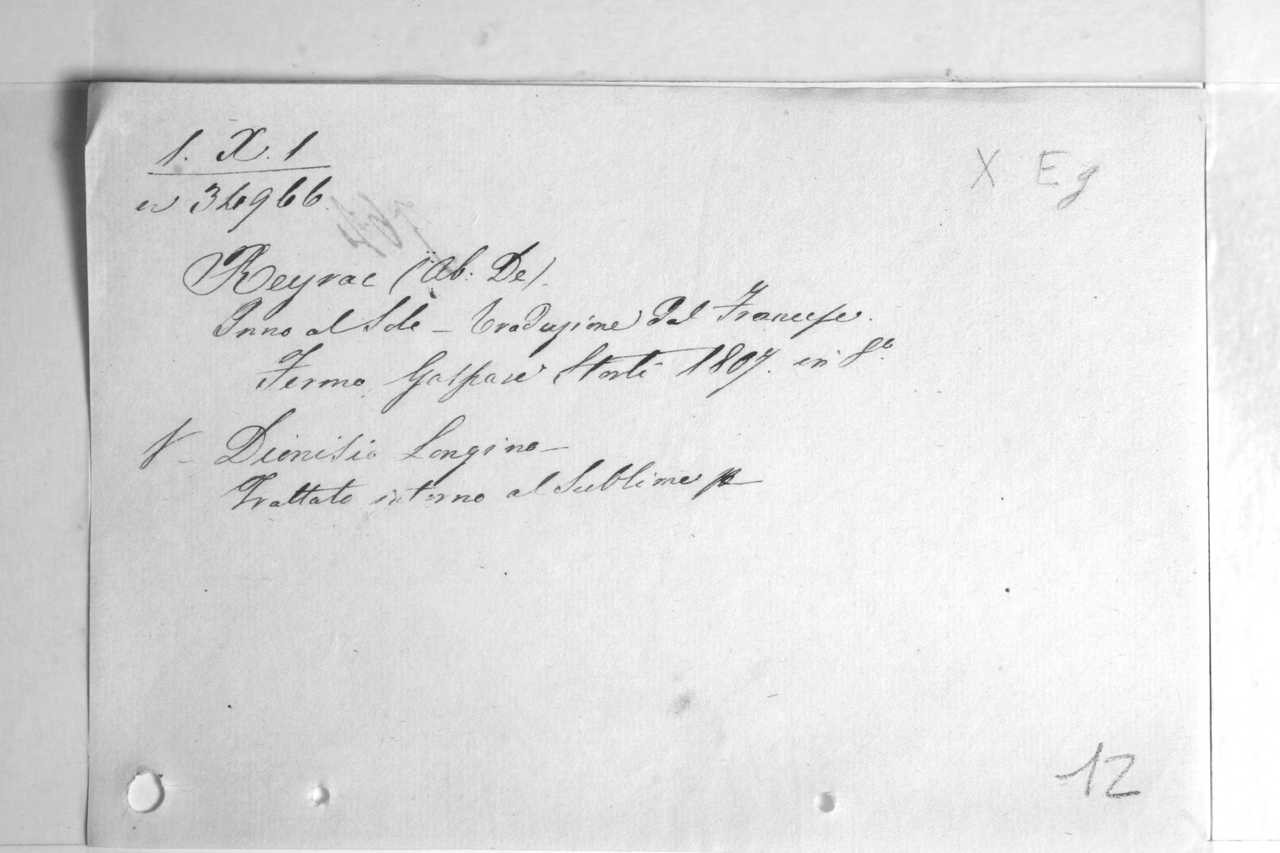 1. X. 1
X Eg
34966
Reyrac (Ab: De).
Inno al Sole – traduzione dal Francese.
Fermo, Gaspare Storti 1807. in 8.º
V – Dionisio Longino –
Trattato intorno al Sublime
12